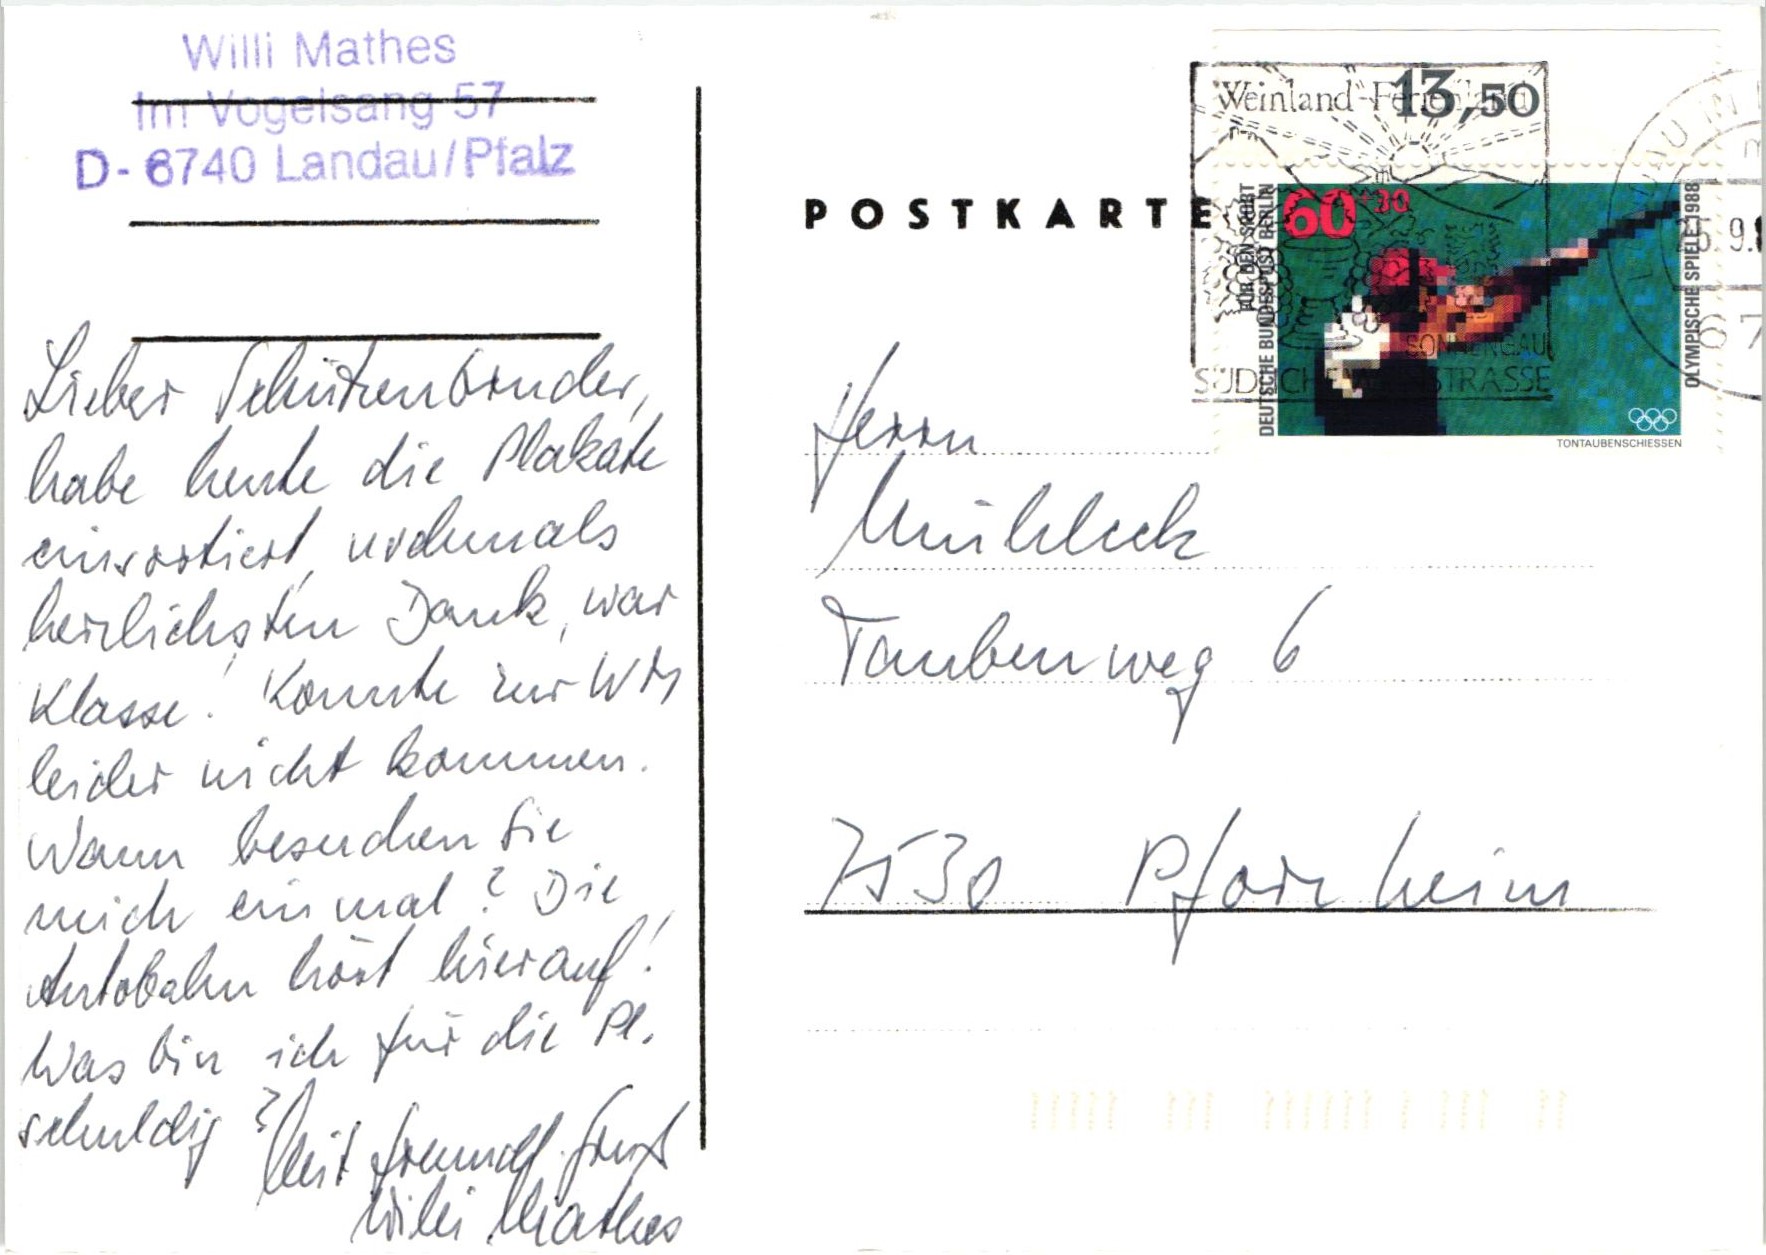 Willi Mathes
Im Vogelsang 57
D- 6740 Landau/Pfalz
Lieber Schützenbruder,
habe heute die Plakate
einsortiert, nochmals
herzlichsten Dank, war
Klasse! Konnte zur WM
leider nicht kommen.
Wann besuchen Sie
mich einmal? Die
Autobahn hört hier auf!
Was bin ich für die Pl.
schuldig?
Mit freundl. Gruß
Willi Mathes
POSTKARTE
Weinland-Ferienland
13,50
SONNENGAU
SÜDLICHE WEINSTRASSE
60+30
FÜR DEN SPORT
DEUTSCHE BUNDESPOST BERLIN
OLYMPISCHE SPIELE 1988
TONTAUBENSCHIESSEN
9.
67
Herrn
Mühleck
Taubenweg 6
7530 Pforzheim